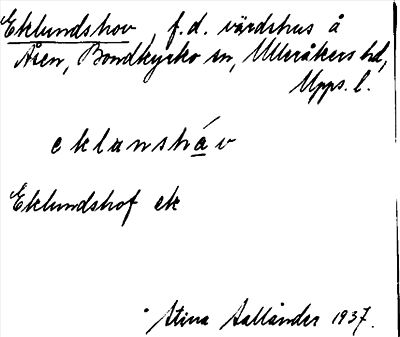 Eklundshov, f.d. värdshus å
Åsen, Bondkyrko sn, Ulleråkers hd,
Upps. l.
eklunshá̲v
Eklundshof ek
Stina Aalländer 1937.